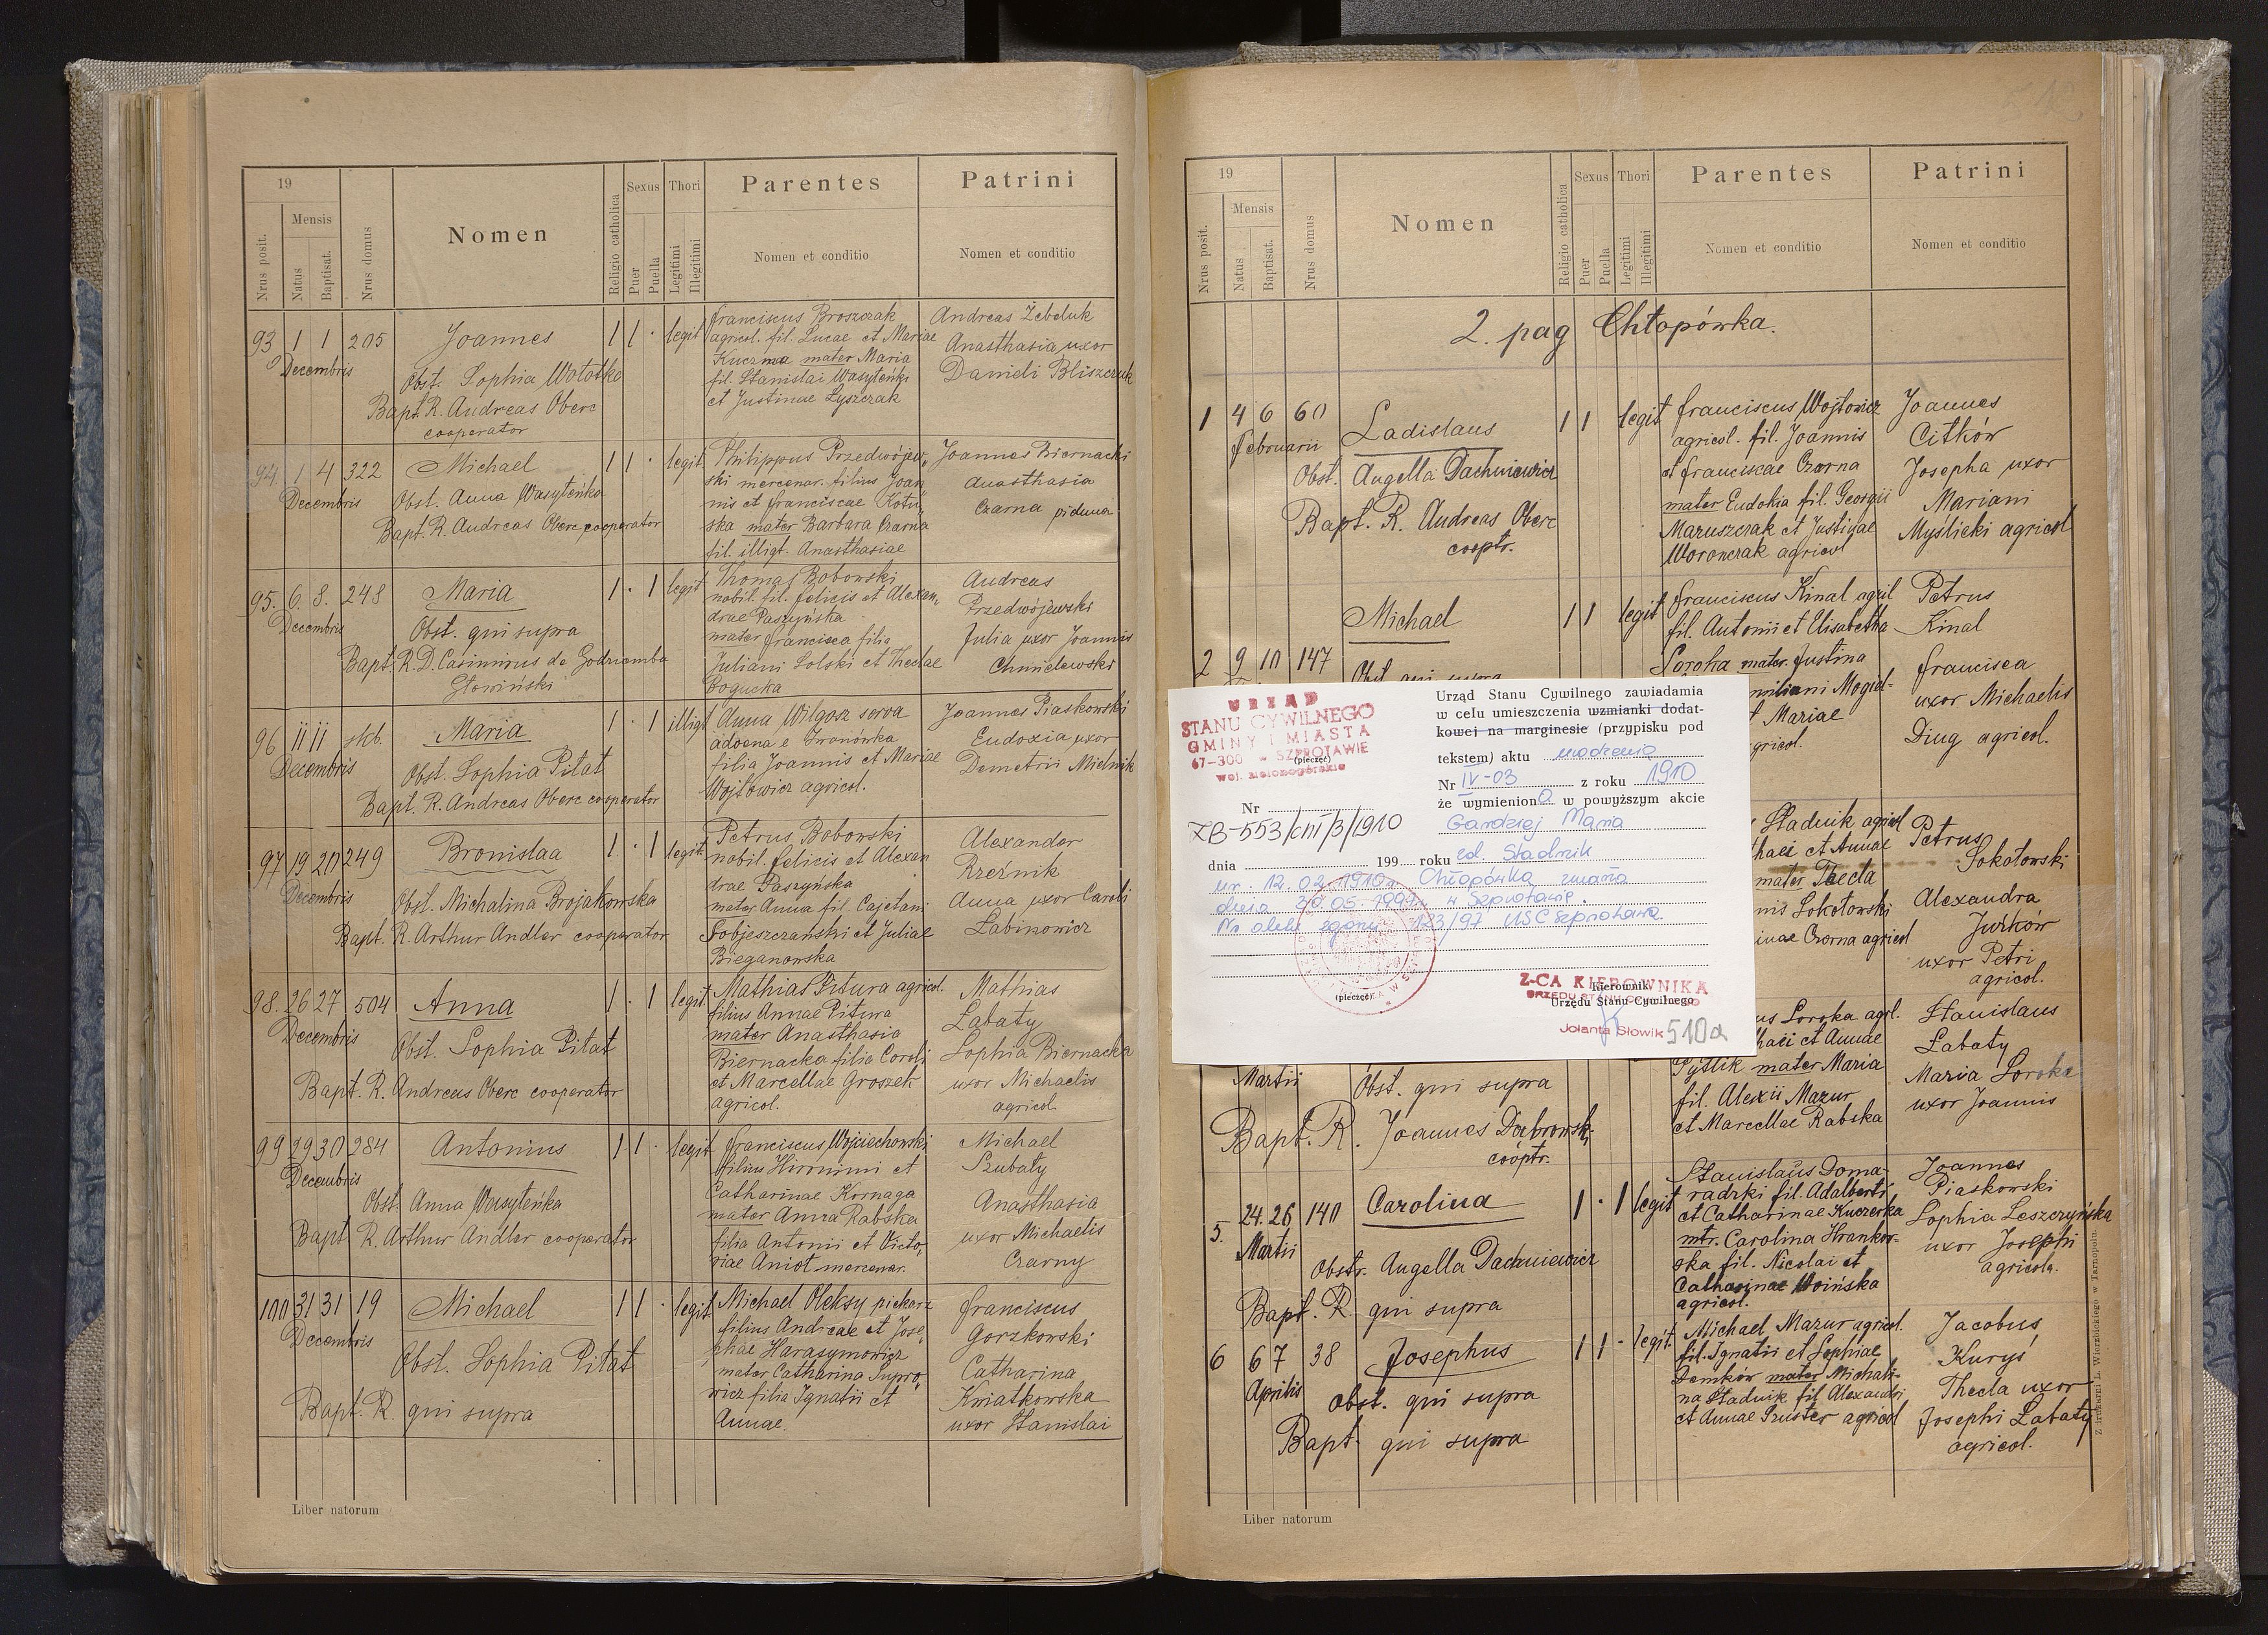 19
Nrus posit.
Mensis
Natus
Baptisat.
Nrus domus
Nomen
Religio catholica
Sexus
Puer
Puella
Thori
Legitimi
Illegitimi
Parentes
Nomen et conditio
Patrini
Nomen et conditio
93 1 1 205 Joannes 1 1 · legit
Decembris
Obst. Sophia
Bapt. R. Andreas Oberc
cooperator
Franciscus Broszczak
agricol. fil. Lucae et Mariae
Kuczma mater Maria
fil. Stanislai Wasyleńki
et Justinae Łyszczak
Andreas Żebeluk
Anasthasia uxor
Danieli Bliszczuk
94. 1 4 322 Michael 1 1 · legit
Decembris
Obst. Anna Wasyleńka
Bapt. R. Andreas Oberc cooperator
Philippus Przedwójew„
ski mercenar. filius Joan
nis et Franciscae Kotu„
ska mater Barbara Czarna
fil. illigt. Anasthasiae
Joannes Biernacki
Anasthasia
Czarna
95. 6. 8. 248 Maria 1 · 1 legit
Decembris
Obst. qui supra
Bapt. R. D. Casimirus de Godziemba
Głowiński
Thomas Bobowski
nobil. fil. Felicis et Alexan„
drae Paszyńska
mater Francisca filia
Juliani Solski et Theclae
Bogucka
Andreas
Przedwójewski
Julia uxor Joannis
Chmielewski
96 11 11 skb. Maria 1 · 1 illigt
Decembris
Obst. Sophia Pitat
Bapt. R. Andreas Oberc cooperator
Anna Wilgosz serva
advena e Iwanówka
filia Joannis et Mariae
Wojtowicz agricol.
Joannes Piaskowski
Eudoxia uxor
Demetrii Mielnik
97 19 20 249 Bronislaa 1. · 1 legit.
Decembris
Obst. Michalina Brojakowska
Bapt. R. Arthur Andler cooperator
Petrus Bobowski
nobil. Felicis et Alexan
drae Paszyńska
mater Anna fil. Cajetani
Sobjeszczański et Juliae
Bieganowska
Alexander
Rzeźnik
Anna uxor Caroli
Łabinowicz
98. 26 27 504 Anna 1 · 1 legit.
Decembris
Obst. Sophia Pitat
Bapt. R. Andreas Oberc cooperator
Mathias Pitura agricol.
filius Annae Pitura
mater Anasthasia
Biernacka filia Caroli
et Marcellae Groszek
agricol.
Mathias
Łabaty
Sophia Biernacka
uxor Michaelis
agricol.
99 29 30 284 Antonius 1 1 · legit
Decembris
Obst. Anna Wasyleńka
Bapt R. Arthur Andler cooperator
Franciscus Wojciechowski
filius Hironimi et
Catharinae Kornaga
mater Anna Rabska
filia Antonii et Victo„
riae Aniot mercenar.
Michael
Szubaty
Anasthasia
uxor Michaelis
Czarny
100 31 31 19 Michael 1 1 · legit.
Decembris
Obst. Sophia Pitat
Bapt. R. qui supra
Michael Oleksy piekarz
filius Andreae et Jose„
phae Harasymowicz
mater Catharina Supro„
wicz filia Ignatii et
Annae.
Franciscus
Gorzkowski
Catharina
Kwiatkowska
uxor Stanislai
Liber natorum
19
Nrus posit.
Mensis
Natus
Baptisat.
Nrus domus
Nomen
Religio catholica
Sexus
Puer
Puella
Thori
Legitimi
Illegitimi
Parentes
Nomen et conditio
Patrini
Nomen et conditio
2. pag Chłopówka.
1 4 6 60 Ladislaus 1 1 legit
Februarii
Obst. Angella Dachniewicz
Bapt. R. Andreas Oberc
cooptr.
Franciscus Wojtowicz
agricol. fil. Joannis
et Franciscae Czarna
mater Eudokia fil. Georgii
Maruszczak et Justinae
Woronczak agricol
Joannes
Citków
Josepha uxor
Mariani
Myślicki agricol
2 9 10 147 Michael 1 1 legit
Obst. qui supra
Franciscus Kinal agril
fil. Antonii et Elisabetha
Soroka mater Justina
miliani Mogiel-
t Mariae
gricol.
Petrus
Kinal
Francisca
uxor Michaelis
Diug agricol.
URZĄD
STANU CYWILNEGO
GMINY I MIASTA
67-300 w SZPROTAWIE
(pieczęć)
woj. zielonogórskie
Nr
ZB-553/CIII/3/1910
dnia 199 roku
Urząd Stanu Cywilnego zawiadamia
w celu umieszczenia wzmianki dodat-
kowej na marginesie (przypisku pod
tekstem) aktu urodzenia
Nr IV-03 z roku 1910
że wymienion a w powyższym akcie
Gandziej Maria
zd. Stadnik
ur. 12.02.1910r. Chłopówka zmarła
dnia 20.05.1997r. w Szprotawie.
Nr aktu zgonu 183/97 USC Szprotawa
(pieczęć)
Z-CA KIEROWNIKA
Kierownik
URZĘDU STANU CYWILNEGO
Urzędu Stanu Cywilnego
Jolanta Słowik
510a
Stadnik agricol
haei et Annae
mater Thecla
nis Sokołowski
inae Czorna agricol
Petrus
Sokołowski
Alexandra
Jurków
uxor Petri
agricol.
us Soroka agrl.
haei et Annae
Pytlik mater Maria
fil. Alexii Mazur
et Marcellae Rabska
Stanislaus
Łabaty
Maria Soroka
uxor Joannis
Martii
Obst. qui supra
Bapt. R. Joannes Dąbrowski
cooptr.
5. 24. 26 140 Carolina 1 · 1 legit
Martii
Obstr. Angella Dachniewicz
Bapt. R. qui supra
Stanislaus Doma-
radzki fil. Adalberti
et Catharinae Kuczerka
mtr. Carolina Hrankow-
ska fil. Nicolai et
Catharinae Woińska
agricol.
Joannes
Piaskowski
Sophia Leszczyńska
uxor Josephi
agricola.
6 6 7 38 Josephus 1 1 - legit.
Aprilis
Obst. qui supra
Bapt. qui supra
Michael Mazur agricol.
fil. Ignatii et Sophiae
Demków mater Michali-
na Stadnik fil Alexandri
et Annae Szuster agricol
Jacobus
Kuryś
Thecla uxor
Josephi Łabaty
agricol.
Liber natorum
Z drukarni L. Wierzbickiego w Tarnopolu.